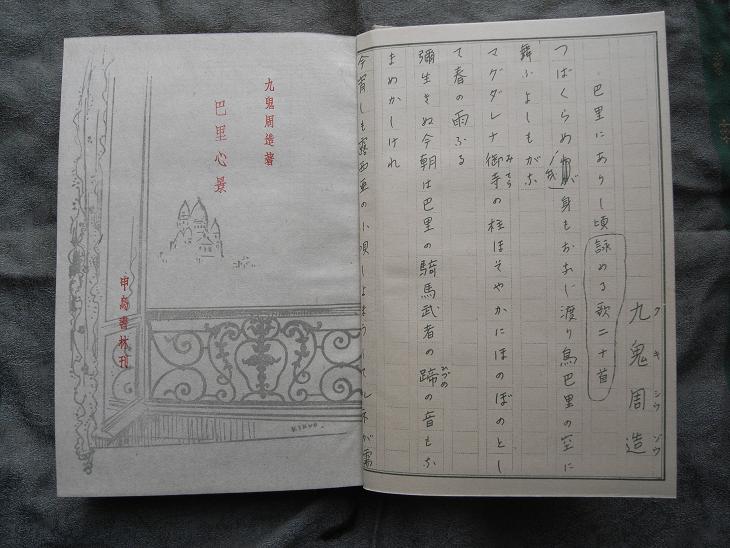 九鬼周造
クキシウゾウ
巴里にありし頃詠める歌二十首
つばくらめ我が身もおなじ渡り鳥巴里の空に
舞ふよしもがな
マグダレナ御寺の柱ほそやかにほのぼのとし
みてら
て春の雨ふる
彌生きぬ今朝は巴里の騎馬武者の蹄の音もな
ひづめ
まめかしけれ
今宵しも露西亜の小唄しよ
九鬼周造著
巴里心景
甲鳥書林刊
KIKUO.